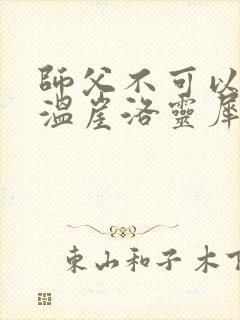 師父不可以
溫崖洛靈犀
東山和子木下